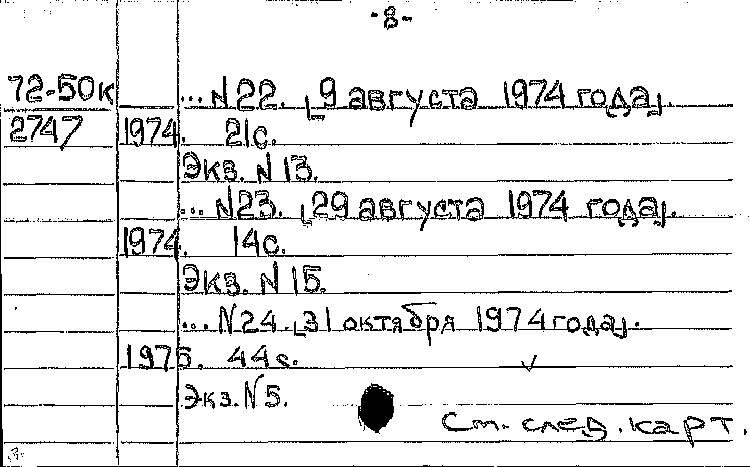 -8-
72-50к ... N 22. [9 августа 1974 года].
2747 1974. 21с.
Экз. N 13.
... N23. [29 августа 1974 года].
1974. 14с.
Экз. N 15.
... N24. [31 октября 1974 года].
1975. 44с.
Экз. N5.
См. след. карт.